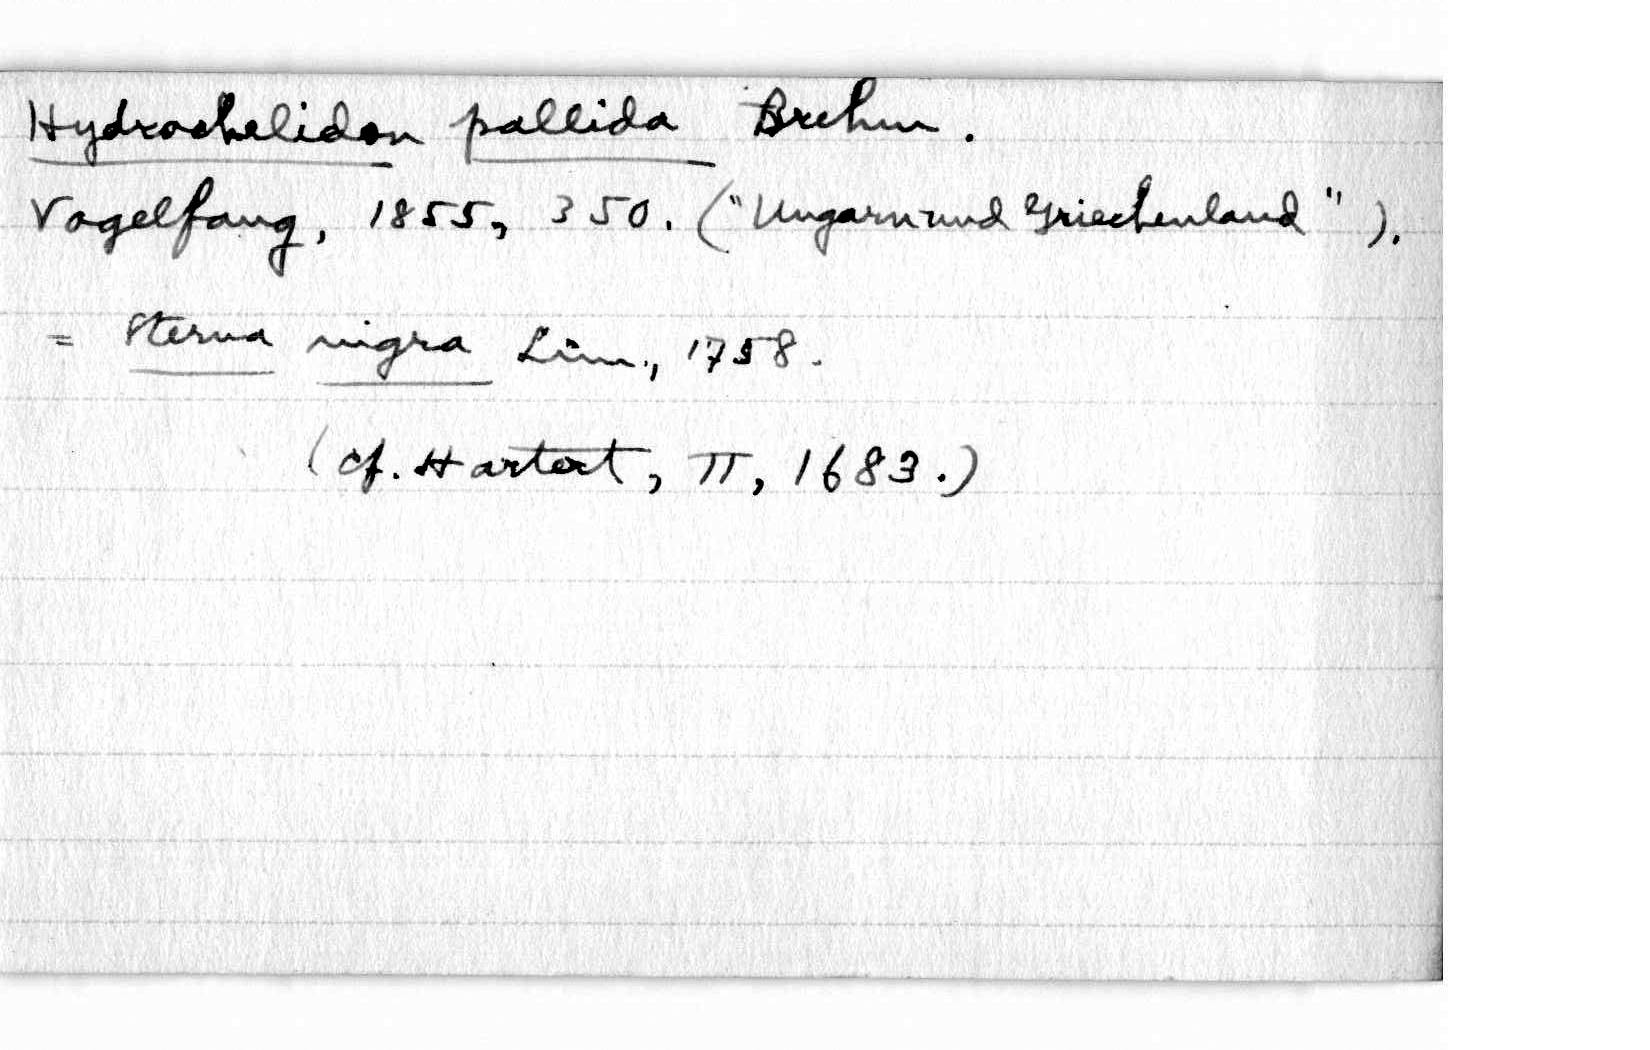 Hydrochelidon pallida Brehm.
Vogelfang, 1855, 350. ("Ungarn und Griechenland").
= Sterna nigra Linn., 1758.
(cf. Hartert, II, 1683.)